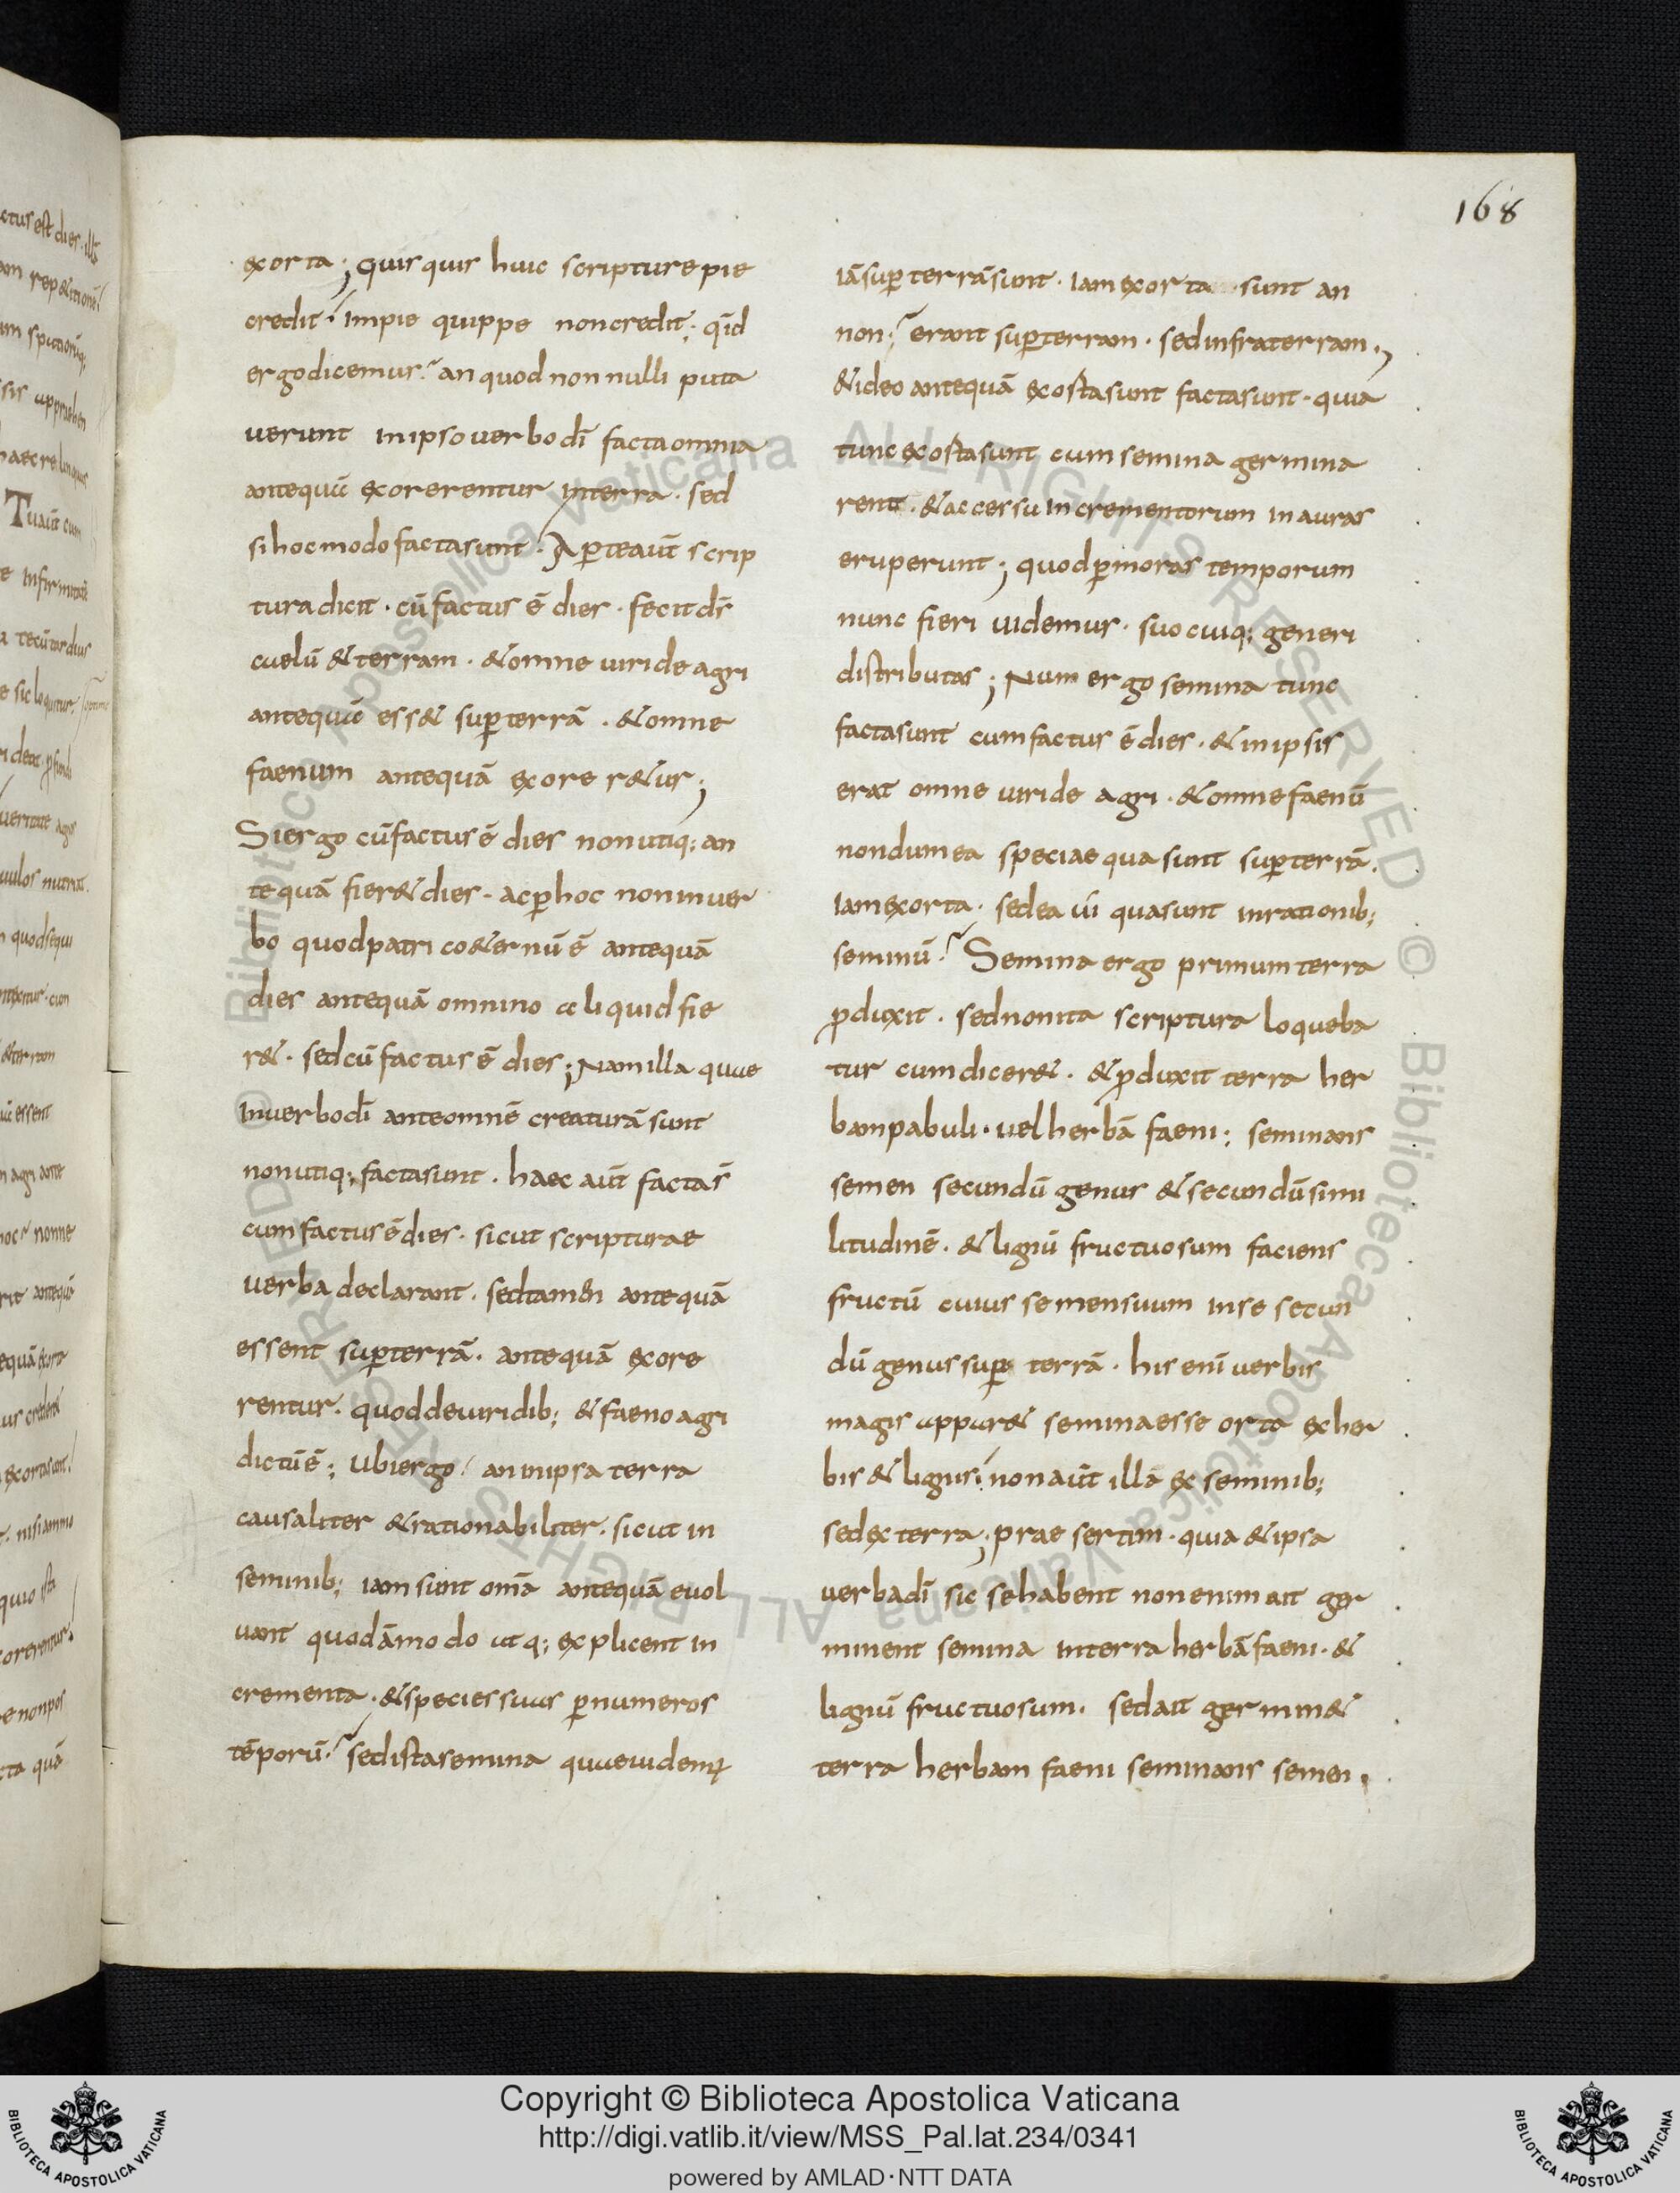 168
exorta; quisquis huic scripture pie
credit impie quippe non credit; qd̄
ergo dicemus? an quod non nulli puta
uerunt in ipso uerbo dī facta omnia
antequā exorerentur in terra · sed
si hoc modo facta sunt · Aperte aūt scrip
tura dicit · cū factus ē dies · fecit ds̄
caelū & terram · & omne uiride agri
antequā ess& sup̱ terrā · & omne
faenum antequā exorer&ur;
Si ergo cū factus ē dies non utiq; an
tequā fier& dies · ac p̱ hoc non in uer
bo quod patri co&ernū ē antequā
dies antequā omnino aliquid fie
r& · sed cū factus ē dies; Nam illa quae
in uerbo dī ante omnē creaturā sunt
non utiq; facta sunt · haec aūt facta s̄
cum factus ē dies · sicut scripturae
uerba declarant · sed tamen antequā
essent sup̱ terrā · antequā exore
rentur · quod de uiridib; & faeno agri
dictū ē; Ubi ergo? an in ipsa terra
causaliter & rationabiliter · sicut in
seminib; iam sunt om̄a antequā euol
uant quodāmodo atq; explicent in
crementa · & species suas p̱ numeros
tēporū? sed ista semina quae uidemꝰ
iā sup̱ terrā sunt · Iam exorta sunt an
non? erant sup̱ terram · sed infra terram ·,
& ideo antequā exorta sunt facta sunt · quia
tunc exorta sunt cum semina germina
rent · & accessu incrementorum in auras
eruperunt; quod p̱ moras temporum
nunc fieri uidemus · suo cuiq; generi
distributas; Num ergo semina tunc
facta sunt cum factus ē dies · & in ipsis
erat omne uiride agri · & omne faenū
nondum ea speciae qua sunt sup̱ terrā ·
Iam exorta · sed ea ui qua sunt in rationib;
seminū? Semina ergo primum terra
ꝓduxit · sed non ita scriptura loqueba
tur cum dicer& · & ꝓduxit terra her
bam pabuli · uel herbā faeni; seminans
semen secundū genus & secundū simi
litudinē · & lignū fructuosum faciens
fructū cuius semen suum in se secun
dū genus sup̱ terrā · his enī uerbis
magis appar& semina esse orta ex her
bis & lignis; non aūt illā ex seminib;
sed ex terra; prae sertim · quia & ipsa
uerba dī sic se habent non enim ait ger
minent semina in terra herbā faeni · &
lignū fructuosum · sed ait germin&
terra herbam faeni seminans semen;
Copyright © Biblioteca Apostolica Vaticana
http://digi.vatlib.it/view/MSS_Pal.lat.234/0341
powered by AMLAD·NTT DATA